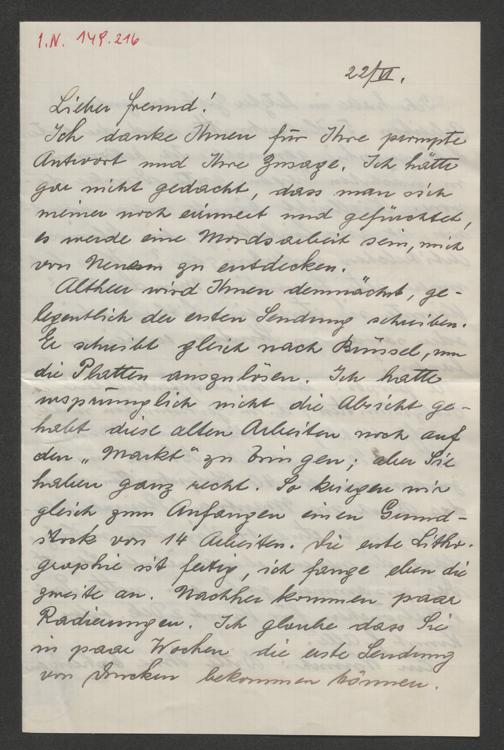 I.N. 149.216
22/VI.
Lieber Freund!
Ich danke Ihnen für Ihre prompte
Antwort und Ihre Zusage. Ich hätte
gar nicht gedacht, dass man sich
meiner noch erinnert und gefürchtet,
es werde eine Mordsarbeit sein, mich
von Neuem zu entdecken.
Altheer wird Ihnen demnächst, ge-
legentlich der ersten Sendung schreiben.
Er schreibt gleich nach Brüssel, um
die Platten auszulösen. Ich hatte
ursprünglich nicht die Absicht ge-
habt diese alten Arbeiten noch auf
den „Markt" zu bringen; aber Sie
haben ganz recht. So kriegen wir
gleich zum Anfangen einen Grund-
stock von 14 Arbeiten. Die erste Litho-
graphie ist fertig, ich fange eben die
zweite an. Nachher kommen paar
Radierungen. Ich glaube dass Sie
in paar Wochen die erste Sendung
von Drucken bekommen können.